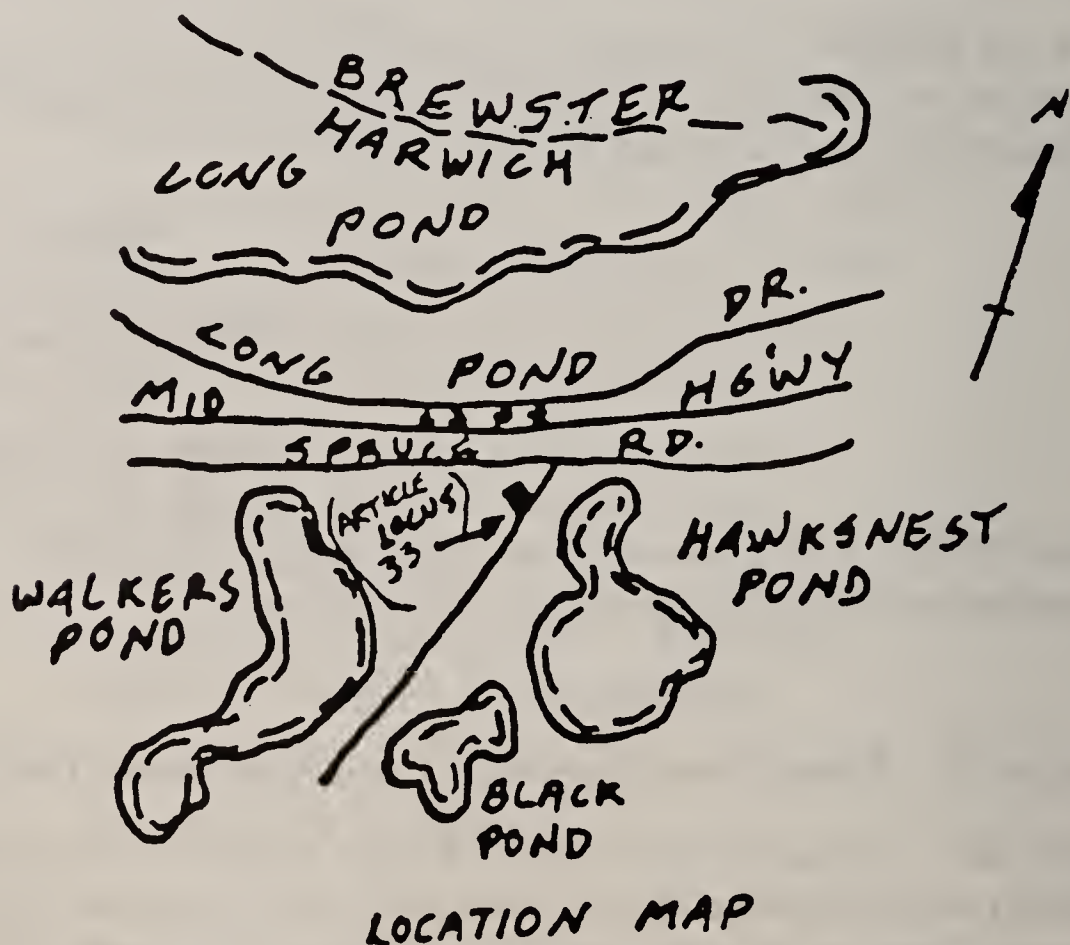 BREWSTER
HARWICH
N
LONG
POND
LONG POND DR.
MID HG'WY
SPRUCE RD.
(ARTICLE
LOCUS)
33
HAWKSNEST
POND
WALKERS
POND
BLACK
POND
LOCATION MAP